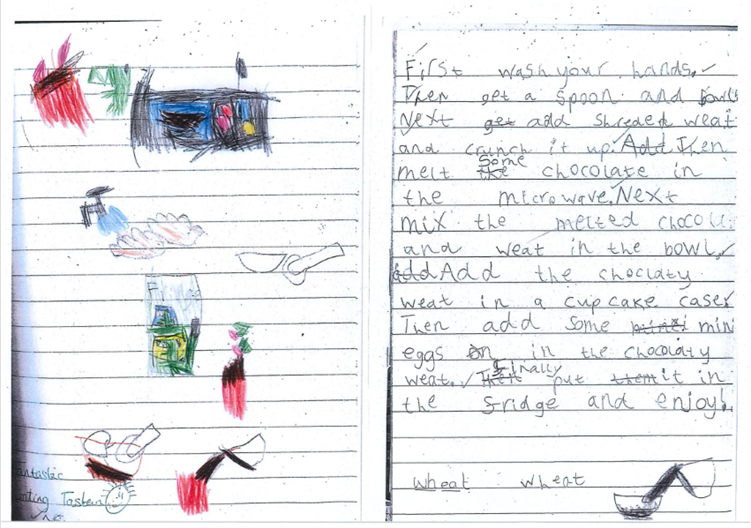 antastic
Tasteu
First wash your hands.
Then get a spoon and bowl
Next get add shreded weat
and crunch it up. Add Then
melt the some chocolate in
the microwave. Next
mix the melted chocol
and weat in the bowl.
add Add the choclaty
weat in a cup cake case.
Then add some mini min
eggs on in the chocolaty
weat. Then Finally put them it in
the fridge and enjoy!
wheat wheat